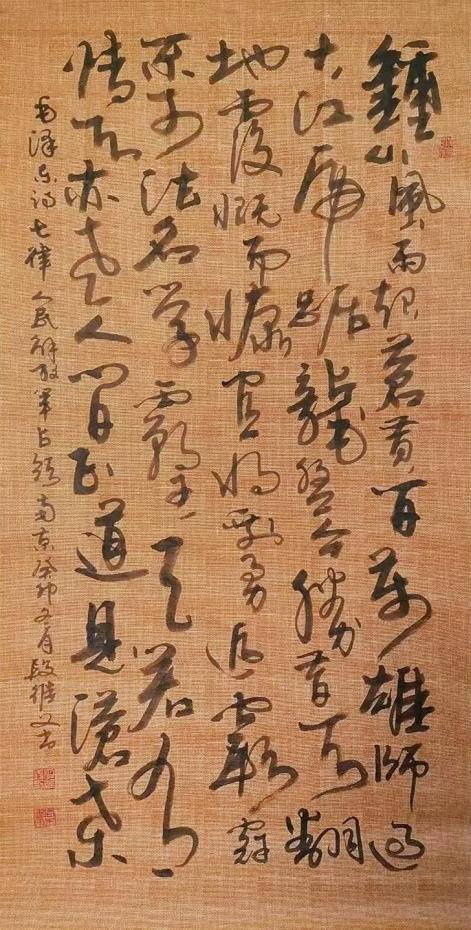 鍾山風雨起蒼黃百萬雄師過
大江虎踞龍盤今勝昔天翻
地覆慨而慷宜將剩勇追窮寇
不可沽名學霸王天若有
情天亦老人間正道是滄桑
毛泽东詩七律人民解放軍占領南京癸卯冬月段書